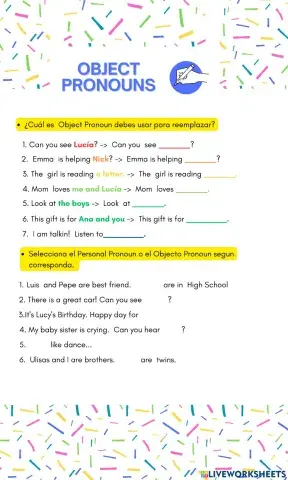 OBJECT
PRONOUNS
¿Cuál es Object Pronoun debes usar para reemplazar?
1. Can you see Lucía? -> Can you see ________?
2. Emma is helping Nick? -> Emma is helping ________?
3. The girl is reading a letter. -> The girl is reading ________.
4. Mom loves me and Lucía -> Mom loves ________.
5. Look at the boys -> Look at ________.
6. This gift is for Ana and you -> This gift is for __________.
7. I am talkin! Listen to__________.
Selecciona el Personal Pronoun o el Objecto Pronoun segun
corresponda.
1. Luis and Pepe are best friend. are in High School
2. There is a great car! Can you see ?
3.It's Lucy's Birthday. Happy day for
4. My baby sister is crying. Can you hear ?
5. like dance...
6. Ulisas and I are brothers. are twins.
LIVEWORKSHEETS